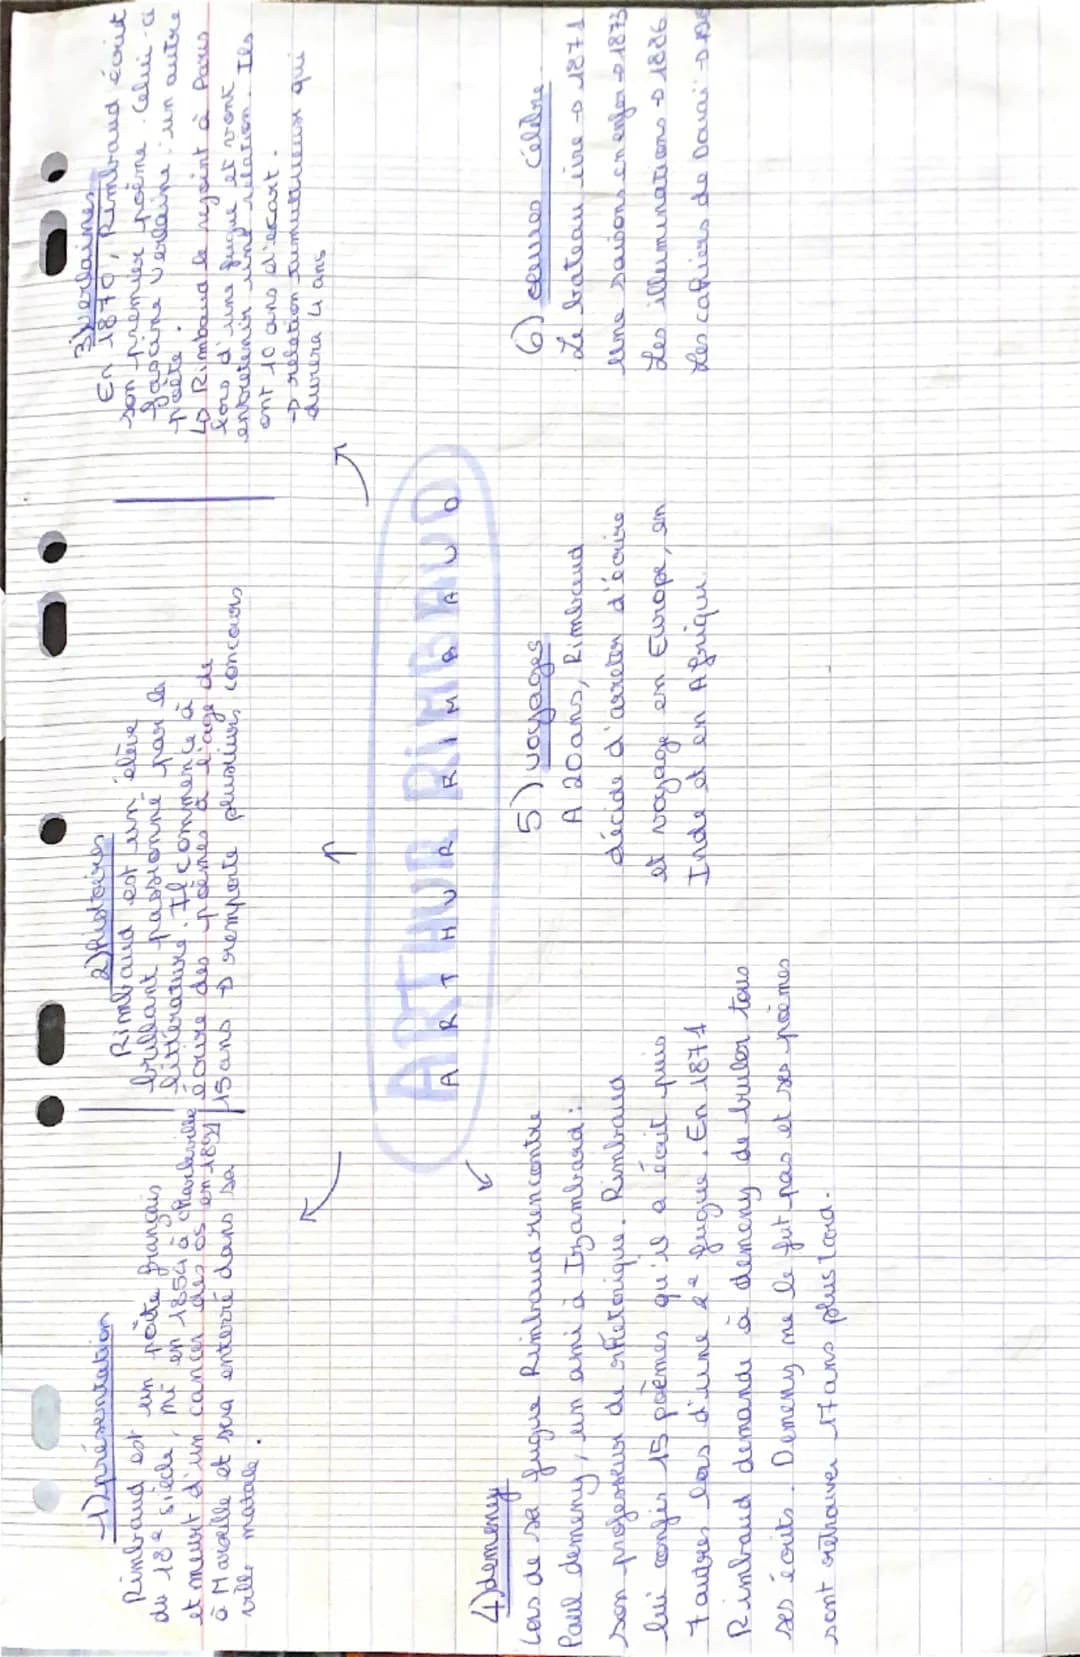 1) présentation
Rimbaud est un poète français
du 18e siècle, né en 1854 à Charleville
et meurt d'un cancer des os en 1891
à Marseille et sera enterré dans sa
ville natale.
2) histoires
Rimbaud est un élève
brillant passionné par la
littérature. Il commence à
écrire des poèmes à l'age de
15 ans → remporte plusieurs concours
3) verlaines
En 1870, Rimbaud écrit
son premier poème. Celui-ci
fascine Verlaine, un autre
poète.
↳ Rimbaud le rejoint à Paris
lors d'une fugue et vont
entretenir une relation. Ils
ont 10 ans d'écart.
→ relation tumultueuse qui
durera 4 ans
ARTHUR RIMBAUD
ARTHUR RIMBAUD
4) demeny
Lors de sa fugue Rimbaud rencontre
Paul demeny, un ami à Izambard :
son professeur de rhétorique. Rimbaud
lui confis 15 poèmes qu'il a écrit puis
7 autres lors d'une 2e fugue. En 1871
Rimbaud demande à demeny de bruler tous
ses écrits. Demeny ne le fut pas et ses poèmes
sont retrouver 17 ans plus tard.
5) voyages
A 20 ans, Rimbaud
décide d'arreter d'écrire
et voyage en Europe, en
Inde et en Afrique.
6) œuvres célèbre
Le bateau ivre → 1871
Une saisons en enfer → 1873
Les illuminations → 1886
Les cahiers de Douai →